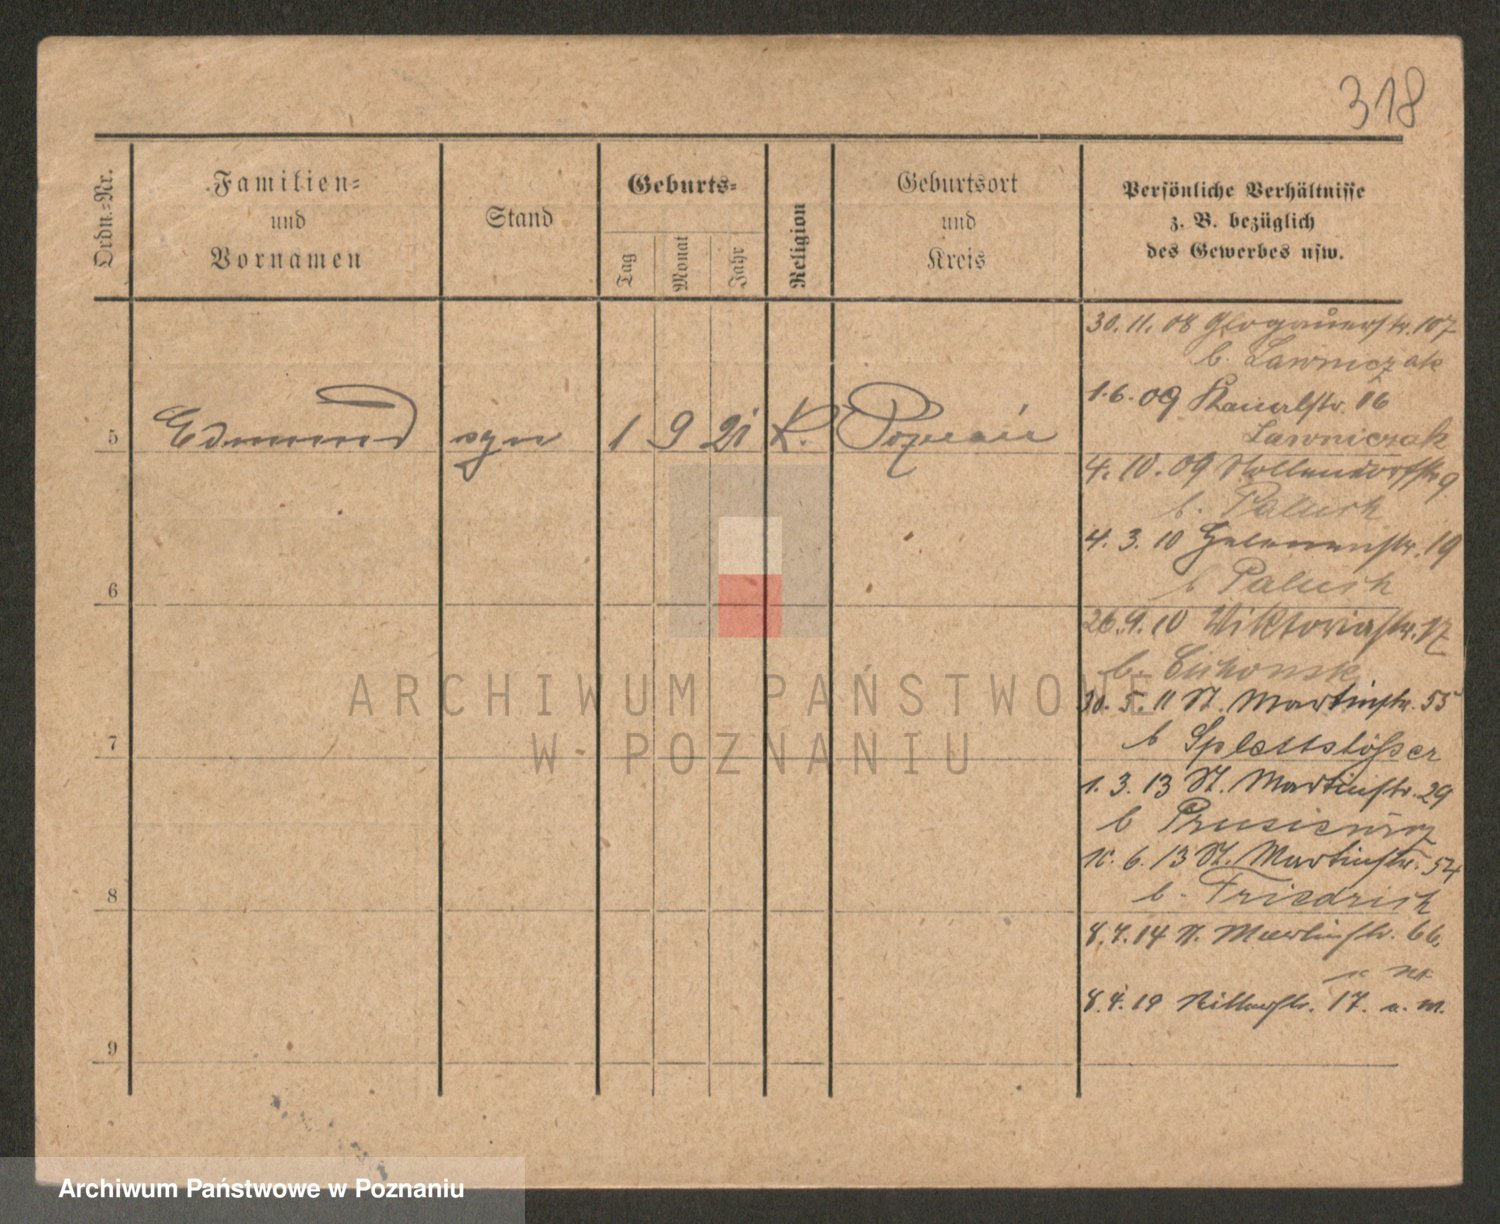 318
Ordn.-Nr.
Familien-
und
Vornamen
Stand
Geburts-
Tag
Monat
Jahr
Religion
Geburtsort
und
Kreis
Persönliche Verhältnisse
z. B. bezüglich
des Gewerbes usw.
30. 11. 08 Glogauerstr. 107
b. Lawniczak
1. 6. 09 str. 16
Lawniczak
5 Edmund syn 1 9 21 K. Poznań
4. 10. 09 Nollendorfstr. 9
b. Palusch
4. 3. 10 Helenenstr. 19
b Palusch
6
26. 9. 10 Viktoriastr. 17
b.
30. 5. 11 St. Martinstr. 55
b Splettstößer
7
1. 3. 13 St. Martinstr. 29
b
6. 13 St. Martinstr. 54
b. Friedrich
8
8. 7. 14 St. Martinstr. 66
8. 4. 19 Ritterstr. 17. a. m.
9
ARCHIWUM PAŃSTWOWE
W POZNANIU
Archiwum Państwowe w Poznaniu